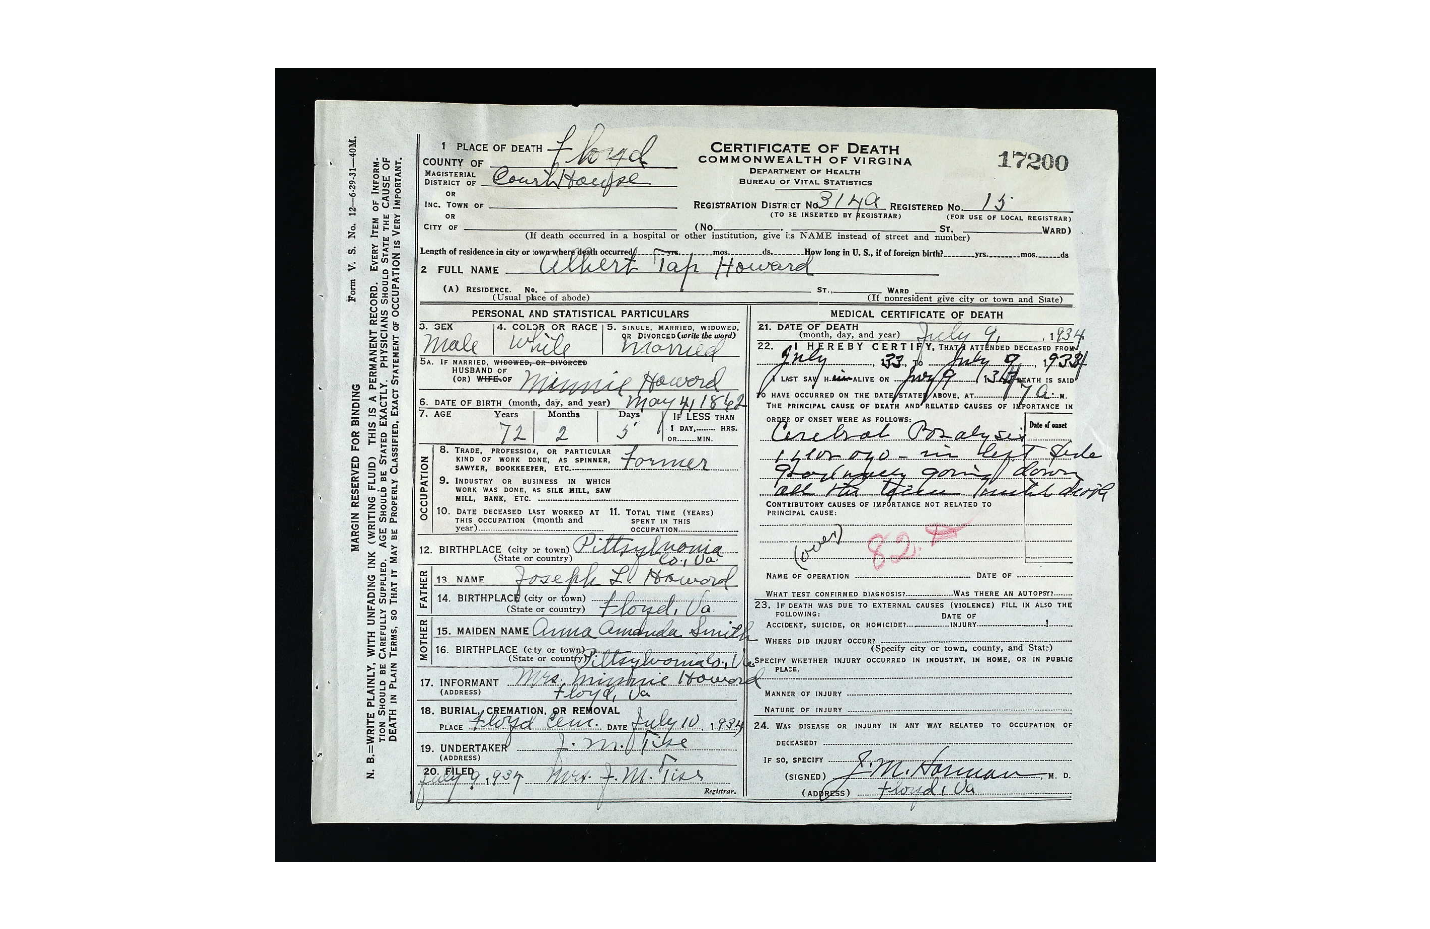 Form V. S. No. 12—6-29-31—40M.
MARGIN RESERVED FOR BINDING
N. B.—WRITE PLAINLY, WITH UNFADING INK (WRITING FLUID) THIS IS A PERMANENT RECORD. EVERY ITEM OF INFORM-
TION SHOULD BE CAREFULLY SUPPLIED. AGE SHOULD BE STATED EXACTLY. PHYSICIANS SHOULD STATE THE CAUSE OF
DEATH IN PLAIN TERMS, SO THAT IT MAY BE PROPERLY CLASSIFIED, EXACT STATEMENT OF OCCUPATION IS VERY IMPORTANT.
1 PLACE OF DEATH
COUNTY OF Floyd
MAGISTERIAL
DISTRICT OF Court House
OR
INC. TOWN OF
OR
CITY OF
CERTIFICATE OF DEATH
COMMONWEALTH OF VIRGINA
DEPARTMENT OF HEALTH
BUREAU OF VITAL STATISTICS
17200
REGISTRATION DISTRCT No. 314a REGISTERED No. 15
(TO BE INSERTED BY REGISTRAR) (FOR USE OF LOCAL REGISTRAR)
(No. ST. WARD)
(If death occurred in a hospital or other institution, give its NAME instead of street and number)
Length of residence in city or town where death occurred yrs. mos. ds. How long in U. S., if of foreign birth? yrs. mos. ds
2 FULL NAME Albert Tap Howard
(A) RESIDENCE. No. ST. WARD
(Usual place of abode) (If nonresident give city or town and State)
PERSONAL AND STATISTICAL PARTICULARS
3. SEX 4. COLOR OR RACE 5. SINGLE, MARRIED, WIDOWED,
OR DIVORCED (write the word)
Male White Married
5A. IF MARRIED, WIDOWED, OR DIVORCED
HUSBAND OF
(OR) WIFE OF Minnie Howard
6. DATE OF BIRTH (month, day, and year) May 4, 1862
7. AGE Years Months Days IF LESS THAN
1 DAY, HRS.
OR MIN.
72 2 5
OCCUPATION
8. TRADE, PROFESSION, OR PARTICULAR
KIND OF WORK DONE, AS SPINNER,
SAWYER, BOOKKEEPER, ETC. Farmer
9. INDUSTRY OR BUSINESS IN WHICH
WORK WAS DONE, AS SILK MILL, SAW
MILL, BANK, ETC.
10. DATE DECEASED LAST WORKED AT
THIS OCCUPATION (month and
year)
11. TOTAL TIME (YEARS)
SPENT IN THIS
OCCUPATION
12. BIRTHPLACE (city or town) Pittsylvania
(State or country) Co., Va.
FATHER
13. NAME Joseph L. Howard
14. BIRTHPLACE (city or town)
(State or country) Floyd, Va
MOTHER
15. MAIDEN NAME Anna Amanda Smith
16. BIRTHPLACE (city or town)
(State or country) Pittsylvania Co., Va
17. INFORMANT Mrs. Minnie Howard
(ADDRESS) Floyd, Va
18. BURIAL, CREMATION, OR REMOVAL
PLACE Floyd Cem. DATE July 10, 1934
19. UNDERTAKER J. M. Tise
(ADDRESS)
20. FILED
July 9, 1934 Mrs. J. M. Tise
Registrar.
MEDICAL CERTIFICATE OF DEATH
21. DATE OF DEATH
(month, day, and year) July 9, 1934
22. I HEREBY CERTIFY, THAT I ATTENDED DECEASED FROM
July 33, TO July 9, 1934
I LAST SAW H im ALIVE ON July 9 1934 DEATH IS SAID
TO HAVE OCCURRED ON THE DATE STATED ABOVE, AT 7 a. M.
THE PRINCIPAL CAUSE OF DEATH AND RELATED CAUSES OF IMPORTANCE IN
ORDER OF ONSET WERE AS FOLLOWS: Date of onset
Cerebral Paralysis
1 year ago - in left side
Gradually going down
all the time until death
CONTRIBUTORY CAUSES OF IMPORTANCE NOT RELATED TO
PRINCIPAL CAUSE:
(over) 82.
NAME OF OPERATION DATE OF
WHAT TEST CONFIRMED DIAGNOSIS? WAS THERE AN AUTOPSY?
23. IF DEATH WAS DUE TO EXTERNAL CAUSES (VIOLENCE) FILL IN ALSO THE
FOLLOWING: DATE OF
ACCIDENT, SUICIDE, OR HOMICIDE? INJURY 1
WHERE DID INJURY OCCUR?
(Specify city or town, county, and State)
SPECIFY WHETHER INJURY OCCURRED IN INDUSTRY, IN HOME, OR IN PUBLIC
PLACE.
MANNER OF INJURY
NATURE OF INJURY
24. WAS DISEASE OR INJURY IN ANY WAY RELATED TO OCCUPATION OF
DECEASED?
IF SO, SPECIFY
(SIGNED) J. M. Harman, M. D.
(ADDRESS) Floyd, Va